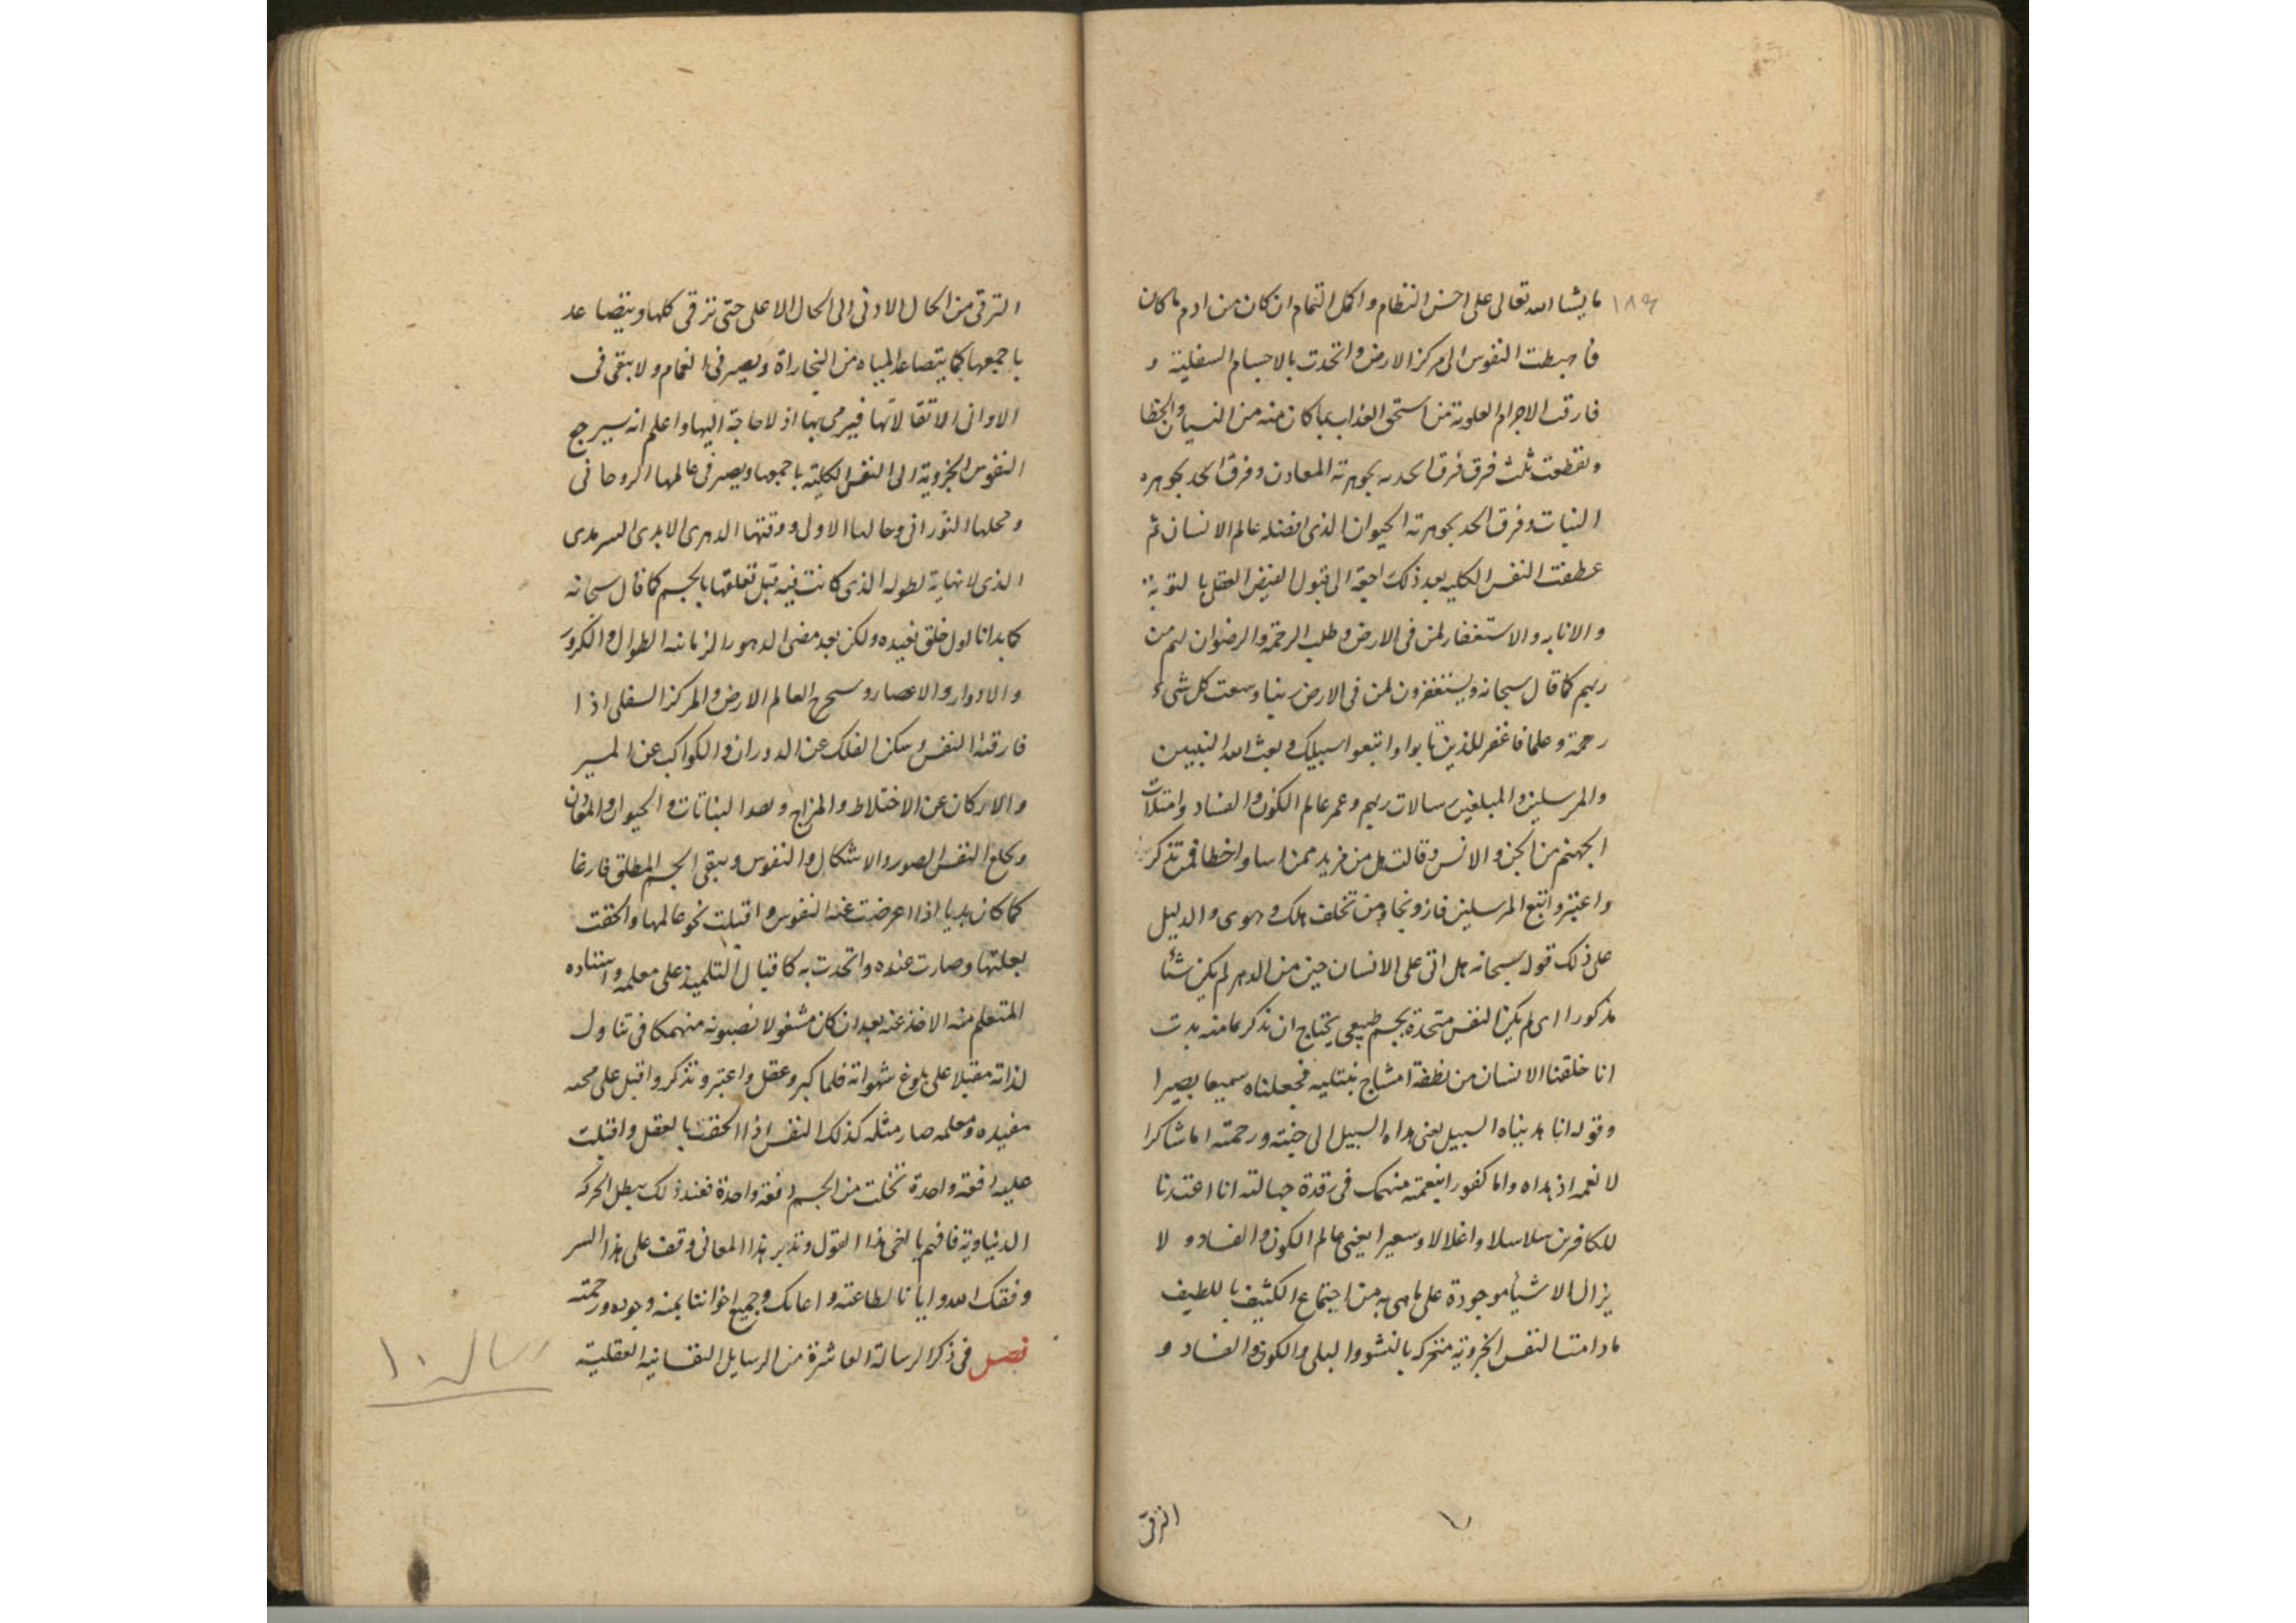 ما يشا الله تعالى على احسن النظام و اكمل التمام ان كان من ادم ما كان
فاهبطت النفوس الى مركز الارض و اتحدت بالاجسام السفلية و
فارقت الاجرام العلوية من استحق العذاب بما كان منه من النسيان و الخطا
و تقطعت ثلث فرق فرق اتحد بجوهرية المعادن و فرق اتحد بجوهره
النبات و فرق اتحد بجوهرته الحيوان الذى افضله عالم الانسان ثم
عطفت النفس الكليه بعد ذلك الى قبول الفيض العقلى بالتوبة
و الانابه و الاستغفار لمن فى الارض و طلب الرحمة و الرضوان لهم من
ربهم كما قال سبحانه و يستغفرون لمن فى الارض ربنا وسعت كل شىء
رحمة و علما فاغفر للذين تابوا و اتبعوا سبيلك و بعث الله النبيين
و المرسلين و المبلغين رسالات ربهم و عمر عالم الكون و الفساد و امتلات
الجهنم من الجن و الانس و قالت هل من مزيد ممن اسا و اخطا فمن تذكر
و اعتبر و اتبع المرسلين فاز و نجا و من تخلف هلك و هوى و الدليل
على ذلك قوله سبحانه هل اتى على الانسان حين من الدهر لم يكن شئا
مذكورا اى لم يكن النفس متحدة بجسم طبيعى يحتاج ان تذكر ما منه بدت
انا خلقنا الانسان من نطفة امشاج نبتليه فجعلناه سميعا بصيرا
و قوله انا هديناه السبيل يعنى هداه السبيل الى جنته و رحمته اما شاكرا
لانعمه اذ هداه و اما كفورا بنعمته منهمك فى رقدة جهالته انا اعتدنا
للكافرين سلاسلا و اغلالا و سعيرا يعنى عالم الكون و الفساد و لا
يزال الاشيأ موجودة على ما هى به من اجتماع الكثيف باللطيف
مادامت النفس الجزوية متحركه بالنشو و البلى و الكون و الفساد و
الترقى
الترقى من الحال الادنى الى الحال الاعلى حتى ترقى كلها و يتصاعد
باجمعها كما يتصاعد المياه من البخاراة و يصير فى الغمام و لا يبقى فى
الاوانى الا ثقالاتها فيرمى بها اذ لا حاجة اليها و اعلم انه سيرجع
النفوس الجزوية الى النفس الكلية باجمعها و يصير فى عالمها الروحانى
و محلها النورانى و حالها الاول و وقتها الدهرى الابدى السرمدى
الذى لا نهاية لطوله الذى كانت فيه قبل تعلقها بالجسم كما قال سبحانه
كما بدانا اول خلق نعيده و لكن بعد مضى الدهور الزمانه الطوال و الكرور
و الادوار و الاعصار و العالم الارض و المركز السفلى اذا
فارقته النفس و سكن الفلك عن الدوران و الكواكب عن المسير
و الاركان عن الاختلاط و المزاج و النباتات و الحيوان و المعادن
و يخلع النفس الصور و الاشكال و النفوس و يبقى الجسم المطلق فارغا
كما كان بديا اذا اعرضت عنه النفوس و اقبلت نحو عالمها و الحقت
بعلتها و صارت عنده و اتحدت به كاقبال التلميذ على معلمه و استاده
المتعلم منه الاخذ عنه بعد ان كان مشغولا منهمكا فى تناول
لذاته مقبلا على بلوغ شهواته فلما كبر و عقل و اعتبر و تذكر و اقبل على
مفيده و معلمه صار مثله كذلك النفس اذا الحقت بالعقل و اقبلت
عليه دفعة واحدة تخلت من الجسم دفعة واحدة فعند ذلك يبطل الحركه
الدنياوية فافهم يا اخى هذا القول و تدبر هذا المعانى و قف على هذا السر
وفقك الله و ايانا لطاعته و اعانك و جميع اخواننا بمنه و جوده و رحمته
فصل فى ذكر الرسالة العاشرة من الرسايل النفسانيه العقلية
رساله ١٠